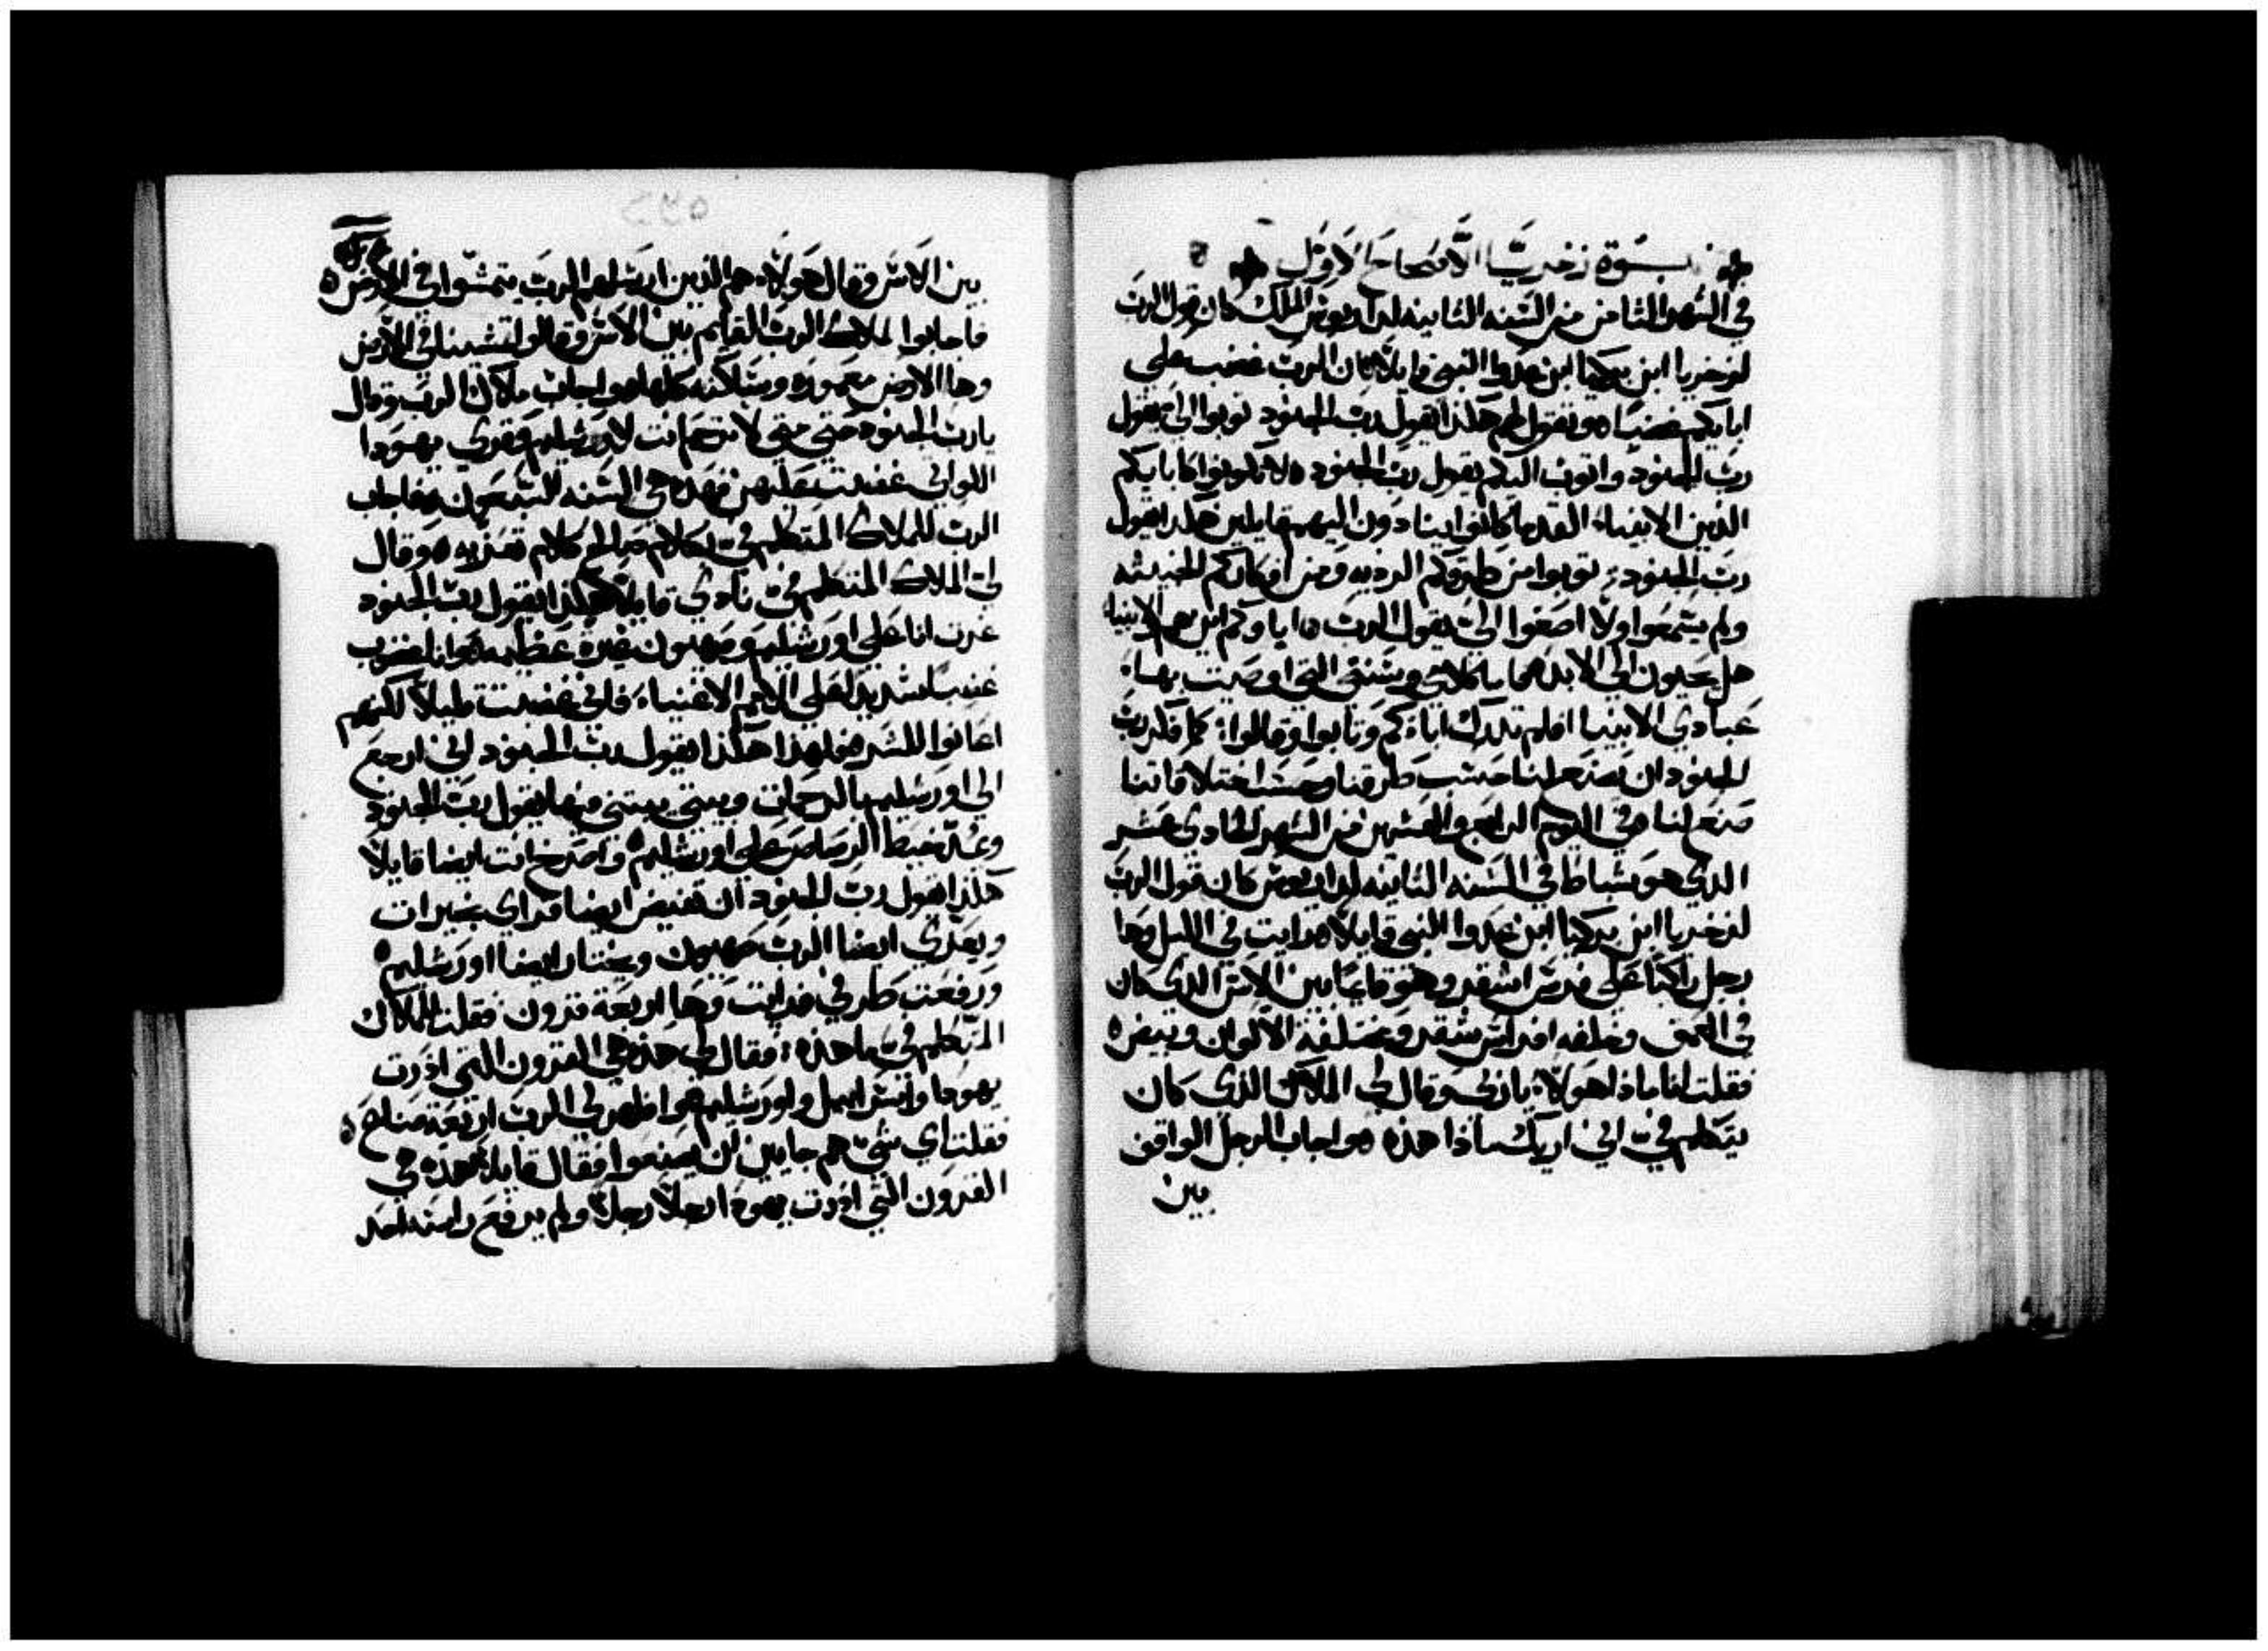 نبوة زخريا الاصحاح الاول
في الشهر الثامن من السنه الثانيه لداريوس الملك كان قول الرب
لزخريا ابن بركيا ابن عدوا النبي قايلا ان الرب غضب على
ابايكم غضبا ه وتقول لهم هكذا يقول رب الجنود توبوا الي يقول
رب الجنود واتوب اليكم يقول رب الجنود ه لا تكونوا كابايكم
الذين الانبياء القدما كانوا ينادون اليهم قايلين هكذا يقول
رب الجنود توبوا من طرقكم الرديه ومن افكاركم الخبيثه
ولم يسمعوا ولا اصغوا الي يقول الرب ه اباوكم اين هم الانبياء
هل يحيون الى الابد بل كلامي وسنني التي اوصيت بها
عبادي الانبيا افلم تدرك اباكم وتابوا وقالوا كما فكر رب
الجنود ان يصنع لنا حسب طرقنا وحسب اختلافاتنا
صنع لنا في اليوم الرابع والعشرين من الشهر الحادي عشر
الذي هو شباط في السنه الثانيه لداريوس كان قول الرب
لزخريا ابن بركيا ابن عدوا النبي قايلا رايت في الليل وها
رجل راكبا على فرس اشقر وهو قايما بين الاس الذي كان
في العمق وخلفه افراس شقر ومختلفة الالوان وبيض ه
فقلت انا ماذا هولاء يا ربي وقال لي الملاك الذي كان
يتكلم في اني اريك ماذا هذه ه واجاب الرجل الواقف
بين
بين الاس وقال هولاء هم الذين ارسلهم الرب يتمشوا في الارض ه
فاجابوا لملاك الرب القايم بين الاس وقالوا تمشينا في الارض
وها الارض معموره وساكنه كلها ه واجاب ملاك الرب وقال
يارب الجنود حتى متى لا ترحم انت لاورشليم وقرى يهودا
اللواتي غضبت عليهن فهذه هي السنه السبعون ه فاجاب
الرب للملاك المتكلم في بكلام صالح كلام تعزيه ه وقال
لي الملاك المتكلم في نادي قايلا هكذا يقول رب الجنود
غرت انا على اورشليم وصهيون بغيرة عظيمه ه وانا اغضب
غضبا شديدا على الامم الاغنياء فاني غضبت قليلا لكنهم
اعانوا للشر ه ولهذا هكذا يقول رب الجنود اني ارجع
الى اورشليم بالرحمات وبيتي يبتني فيها يقول رب الجنود
وعد خيط الرصاص على اورشليم ه واصرخ انت ايضا قايلا
هكذا يقول رب الجنود ان تفيض ايضا قراي بخيرات
ويعزي ايضا الرب صهيون ويختار ايضا اورشليم ه
ورفعت طرفي فرايت وها اربعة قرون فقلت للملاك
المتكلم في ما هذه فقال لي هذه هي القرون التي اذرت
يهودا واسراييل واورشليم ه واظهر لي الرب اربعة صناع ه
فقلت اي شي هم جايين ان يصنعوا فقال قايلا هذه هي
القرون التي اذرت يهودا رجلا رجلا ولم يرفع راسه احد